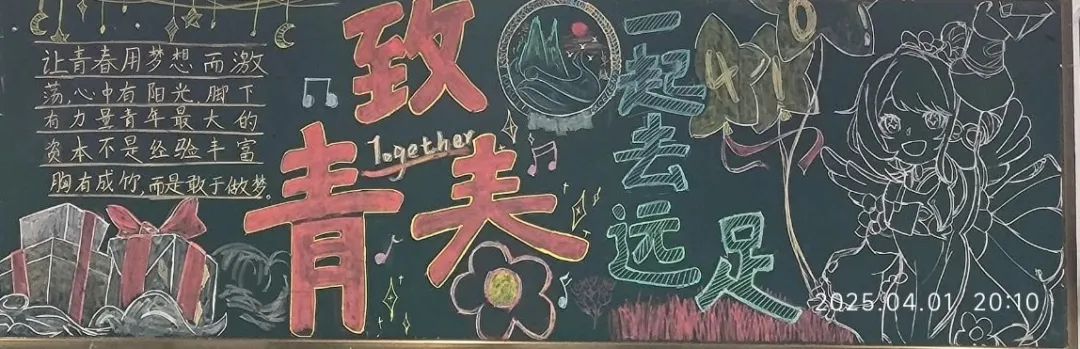 让青春用梦想而激
荡,心中有阳光,脚下
有力量青年最大的
资本不是经验丰富
胸有成竹,而是敢于做梦。
致
青春
Together
一起去远足
2025.04.01 20:10